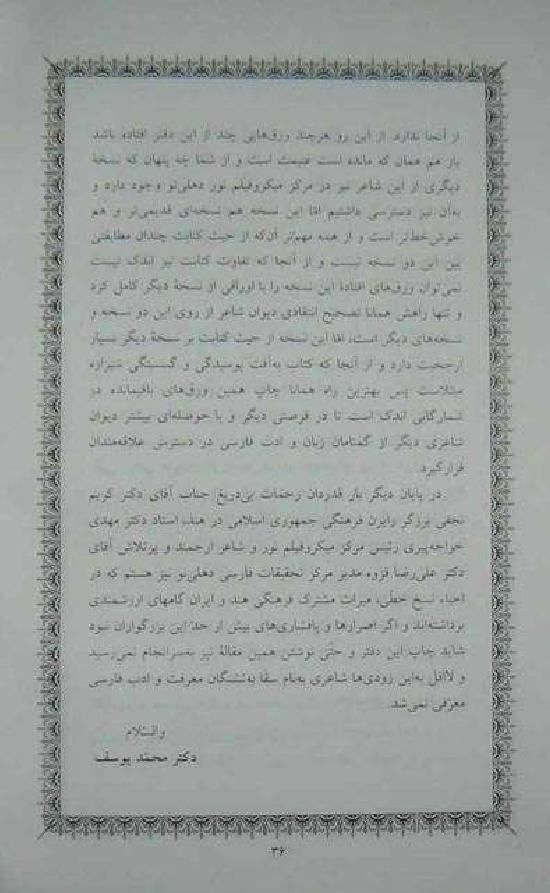 از آنجا ندارد. از این رو هرچند ورق‌هایی چند از این دفتر افتاده باشد
باز هم همان که مانده است غنیمت است و از شما چه پنهان که نسخهٔ
دیگری از این شاعر نیز در مرکز میکروفیلم نور دهلی‌نو وجود دارد و
به‌آن نیز دسترسی داشتیم امّا این نسخه هم نسخه‌ای قدیمی‌تر و هم
خوش‌خط‌تر است و از همه مهم‌تر آن‌که از حیث کتابت چندان مطابقتی
بین این دو نسخه نیست و از آنجا که تفاوت کتابت نیز اندک نیست
نمی‌توان ورق‌های افتادهٔ این نسخه را با اوراقی از نسخهٔ دیگر کامل کرد
و تنها راهش همانا تصحیح انتقادی دیوان شاعر از روی این دو نسخه و
نسخه‌های دیگر است، امّا این نسخه از حیث کتابت بر نسخهٔ دیگر بسیار
ارجحیت دارد و از آنجا که کتاب به‌آفت پوسیدگی و گسستگی شیرازه
مبتلاست پس بهترین راه همانا چاپ همین ورق‌های باقیمانده در
شمارگانی اندک است تا در فرصتی دیگر و با حوصله‌ای بیشتر دیوان
شاعری دیگر از گمنامان زبان و ادب فارسی در دسترس علاقه‌مندان
قرار گیرد.
در پایان دیگر بار قدردان زحمات بی‌دریغ جناب آقای دکتر کریم
نجفی برزگر رایزن فرهنگی جمهوری اسلامی در هند، استاد دکتر مهدی
خواجه‌پیری رئیس مرکز میکروفیلم نور و شاعر ارجمند و پرتلاش آقای
دکتر علی‌رضا قزوه مدیر مرکز تحقیقات فارسی دهلی‌نو نیز هستم که در
احیاء نسخ خطّی، میراث مشترک فرهنگی هند و ایران گامهای ارزشمندی
برداشته‌اند و اگر اصرارها و پافشاری‌های بیش از حدّ این بزرگواران نبود
شاید چاپ این دفتر و حتّی نوشتن همین مقاله نیز به‌سرانجام نمی‌رسید
و لااقل به‌این زودی‌ها شاعری به‌نام سقا به‌تشنگان معرفت و ادب فارسی
معرفی نمی‌شد.
والسّلام
دکتر محمّد یوسف
۳۶